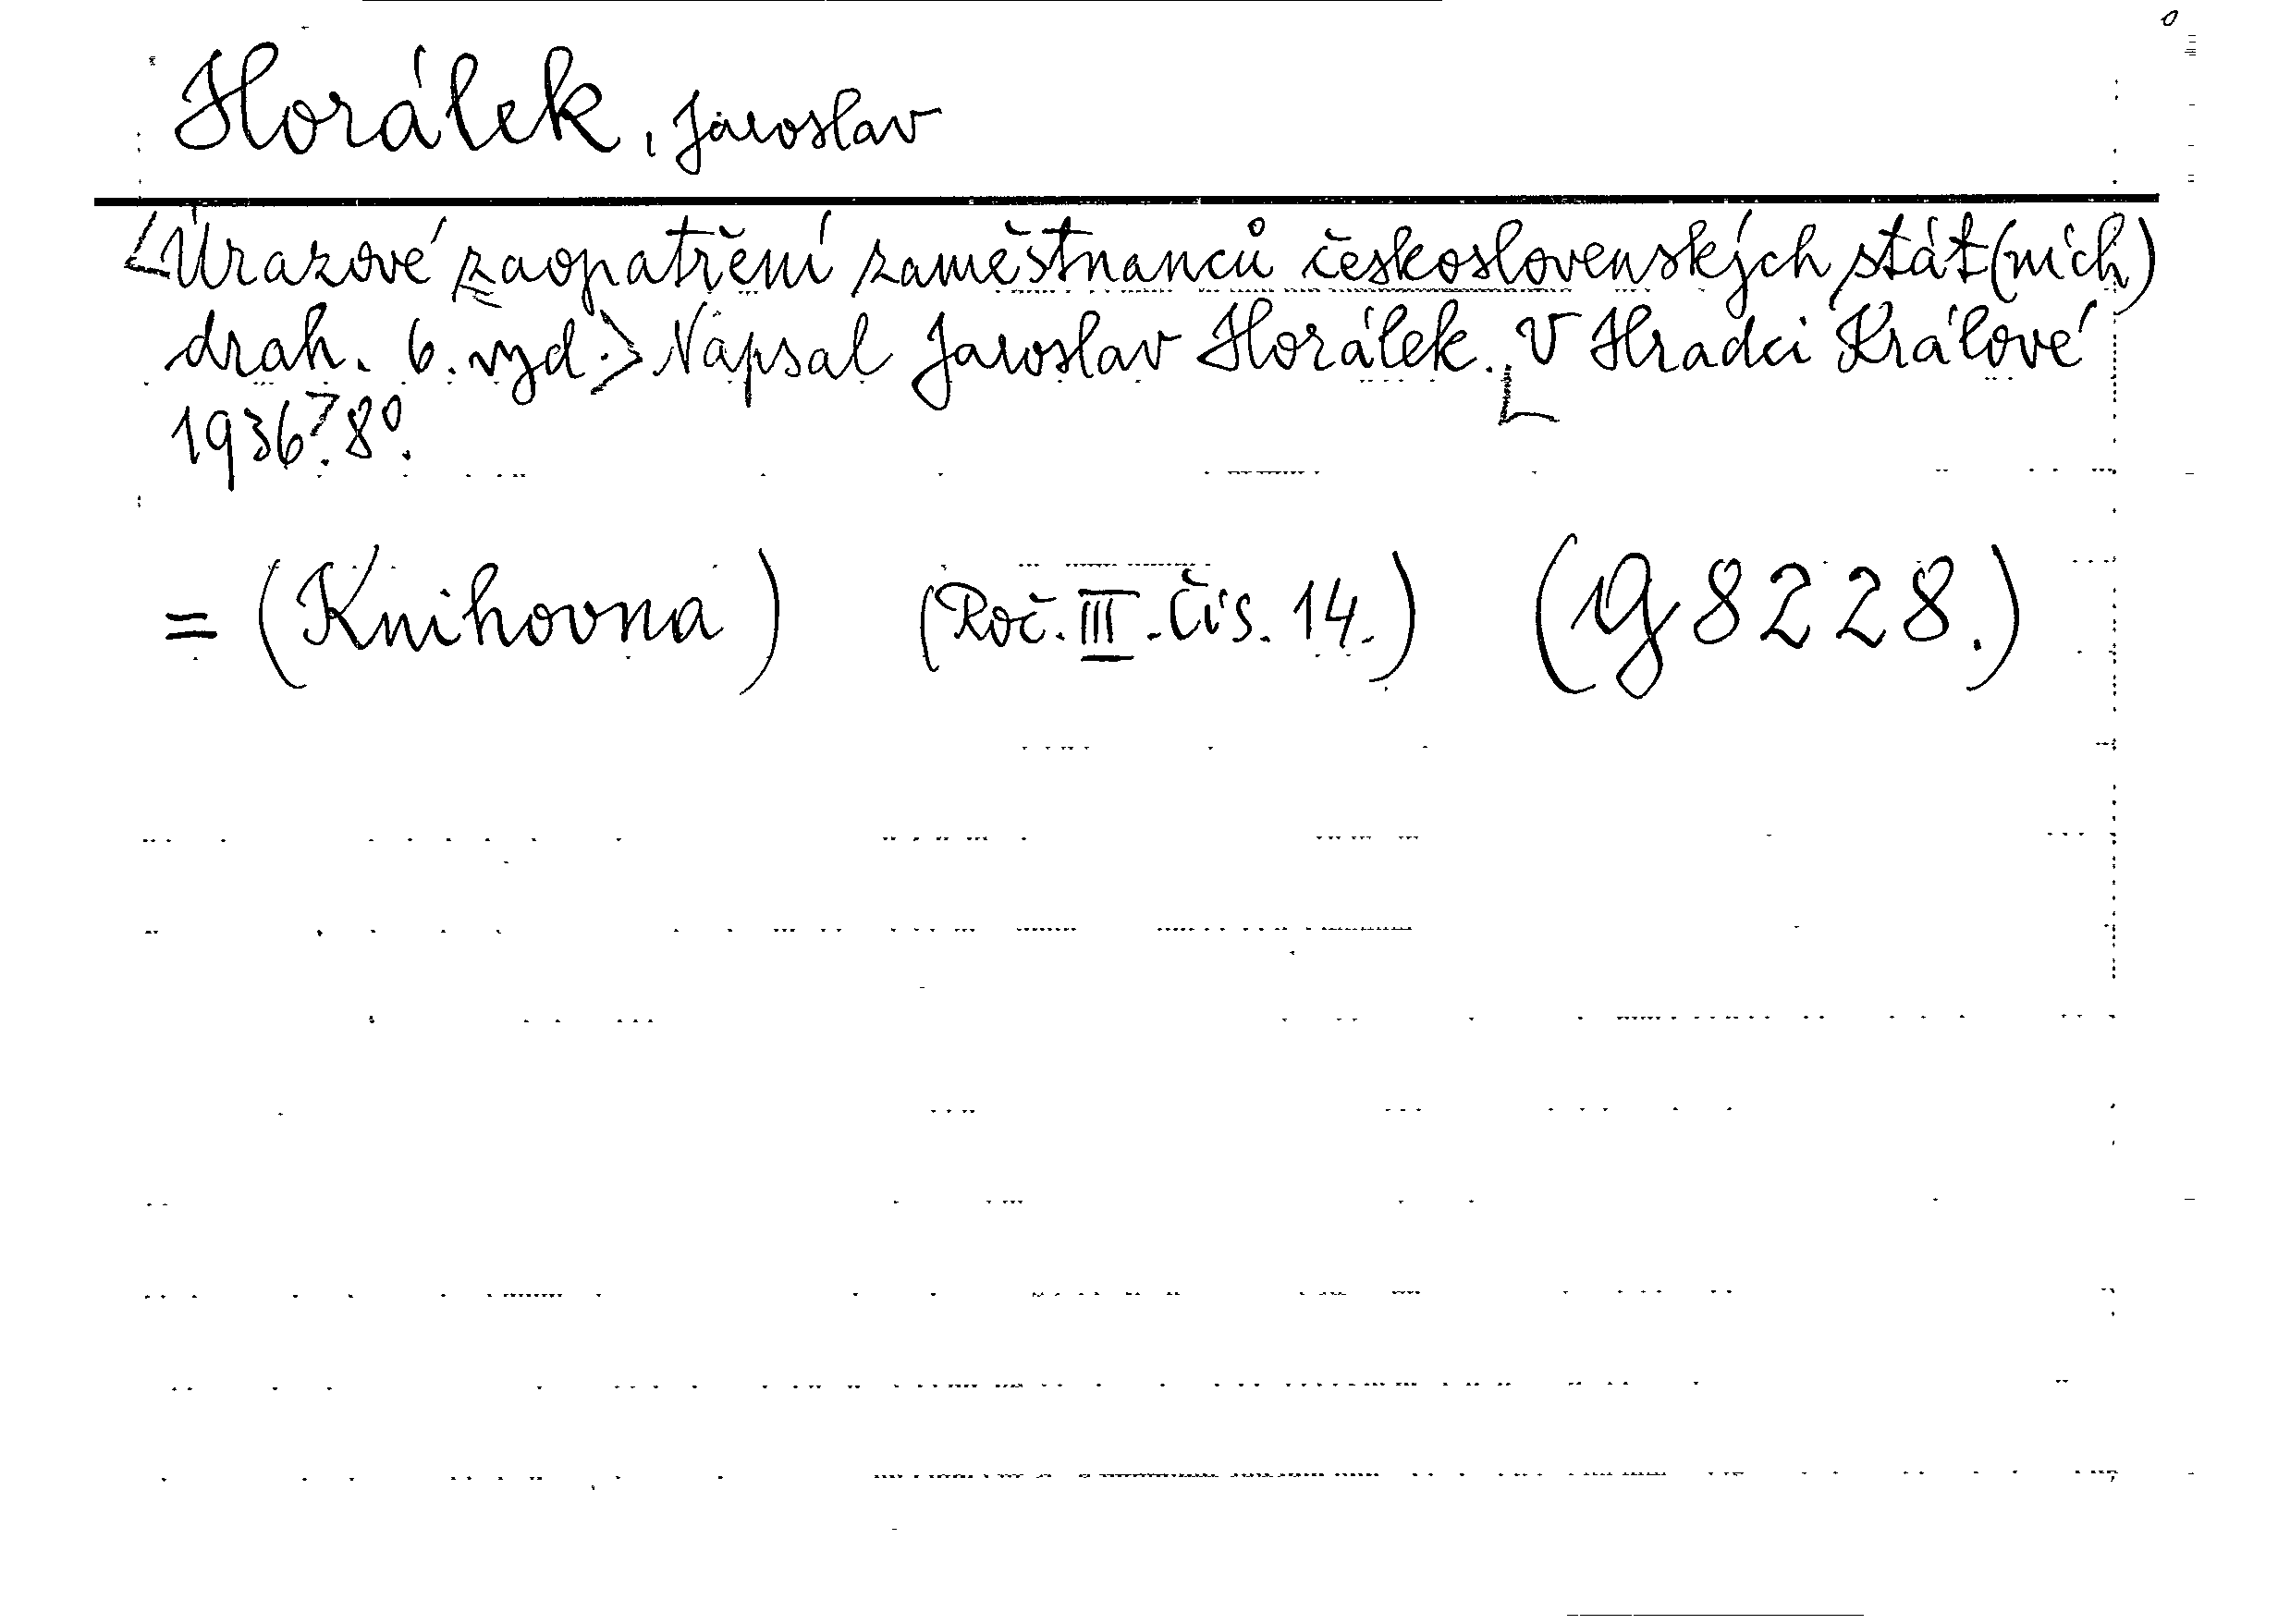 Horálek, Jaroslav
<Úrazové zaopatření zaměstnanců československých stát(ních)
drah. 6. vyd.> Napsal Jaroslav Horálek. V Hradci Králové
1936. 8°.
= (Knihovna) (Roč. III. Čís. 14.) (G 8228.)